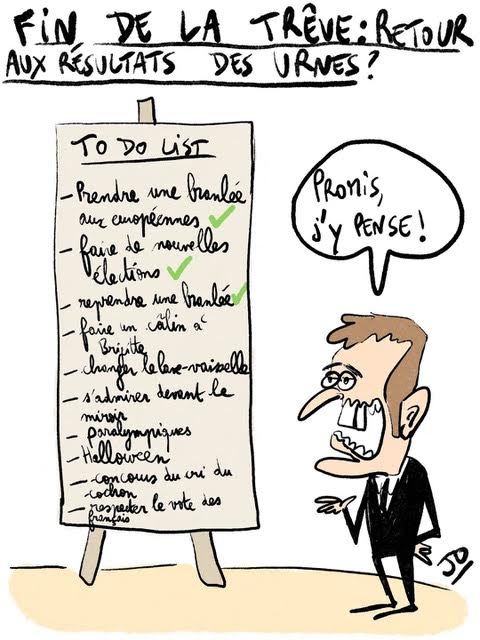 FIN DE LA TRÊVE : RETOUR
AUX RÉSULTATS DES URNES ?
TO DO LIST
- Prendre une branlée
aux européennes ✓
- faire de nouvelles
élections ✓
- reprendre une branlée ✓
- faire un câlin à
Brigitte
- changer le lave-vaisselle
- s'admirer devant le
miroir
- paralympiques
- Halloween
- concours du cri du
cochon
- respecter le vote des
français
Promis,
j'y PENSE !